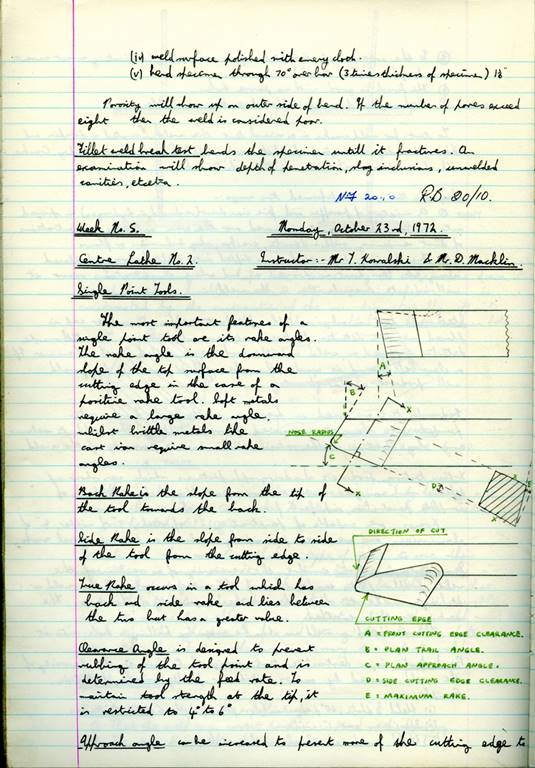 (iv) weld surface polished with emery cloth.
(v) bend specimen through 70° over bar (3 times thickness of specimen) 1½"
Porosity will show up on outer side of bend. If the number of pores exceed
eight then the weld is considered poor.
Fillet weld break test bends the specimen untill it fractures. An
examination will show depth of penetration, slag inclusions, unwelded
cavities, etcetra.
20.10 R.B. 20/10.
Week No. 5. Monday, October 23rd, 1972.
Centre Lathe No. 2. Instructor:- Mr T. Kowalski & Mr. D. Macklin.
Single Point Tools.
The most important features of a
single point tool are its rake angles.
The rake angle is the downward
slope of the top surface from the
cutting edge in the case of a
positive rake tool. Soft metals
require a large rake angle.
whilst brittle metals like
cast iron require small rake
angles.
Back Rake is the slope from the tip of
the tool towards the back.
Side Rake is the slope from side to side
of the tool from the cutting edge.
True Rake occurs in a tool which has
back and side rake and lies between
the two but has a greater value.
Clearance Angle is designed to prevent
rubbing of the tool point and is
determined by the feed rate. To
maintain tool strength at the tip, it
is restricted to 4° to 6°
Approach angle can be increased to present more of the cutting edge to
A
B
X
NOSE RADIUS
C
D
E
X
X
DIRECTION OF CUT
CUTTING EDGE
A = FRONT CUTTING EDGE CLEARANCE.
B = PLAN TRAIL ANGLE.
C = PLAN APPROACH ANGLE.
D = SIDE CUTTING EDGE CLEARANCE.
E = MAXIMUM RAKE.